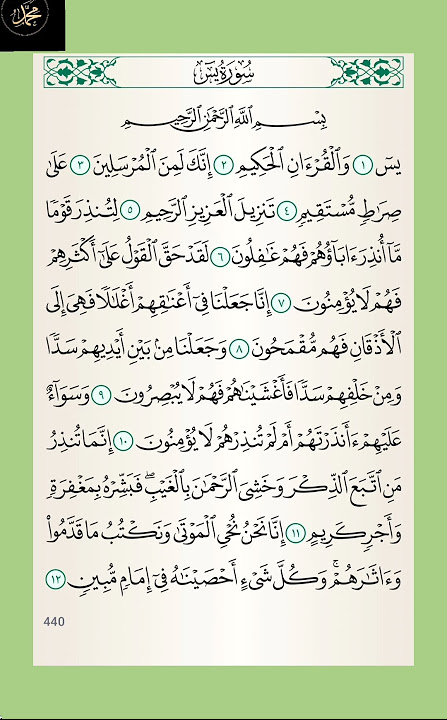 محمد
سُورَةُ يسٓ
بِسْمِ ٱللَّهِ ٱلرَّحْمَٰنِ ٱلرَّحِيمِ
يسٓ ١ وَٱلْقُرْءَانِ ٱلْحَكِيمِ ٢ إِنَّكَ لَمِنَ ٱلْمُرْسَلِينَ ٣ عَلَىٰ
صِرَٰطٍ مُّسْتَقِيمٍ ٤ تَنزِيلَ ٱلْعَزِيزِ ٱلرَّحِيمِ ٥ لِتُنذِرَ قَوْمًا
مَّآ أُنذِرَ ءَابَآؤُهُمْ فَهُمْ غَٰفِلُونَ ٦ لَقَدْ حَقَّ ٱلْقَوْلُ عَلَىٰٓ أَكْثَرِهِمْ
فَهُمْ لَا يُؤْمِنُونَ ٧ إِنَّا جَعَلْنَا فِىٓ أَعْنَٰقِهِمْ أَغْلَٰلًا فَهِىَ إِلَى
ٱلْأَذْقَانِ فَهُم مُّقْمَحُونَ ٨ وَجَعَلْنَا مِنۢ بَيْنِ أَيْدِيهِمْ سَدًّا
وَمِنْ خَلْفِهِمْ سَدًّا فَأَغْشَيْنَٰهُمْ فَهُمْ لَا يُبْصِرُونَ ٩ وَسَوَآءٌ
عَلَيْهِمْ ءَأَنذَرْتَهُمْ أَمْ لَمْ تُنذِرْهُمْ لَا يُؤْمِنُونَ ١٠ إِنَّمَا تُنذِرُ
مَنِ ٱتَّبَعَ ٱلذِّكْرَ وَخَشِىَ ٱلرَّحْمَٰنَ بِٱلْغَيْبِ ۖ فَبَشِّرْهُ بِمَغْفِرَةٍ
وَأَجْرٍ كَرِيمٍ ١١ إِنَّا نَحْنُ نُحْىِ ٱلْمَوْتَىٰ وَنَكْتُبُ مَا قَدَّمُوا۟
وَءَاثَٰرَهُمْ ۚ وَكُلَّ شَىْءٍ أَحْصَيْنَٰهُ فِىٓ إِمَامٍ مُّبِينٍ ١٢
440